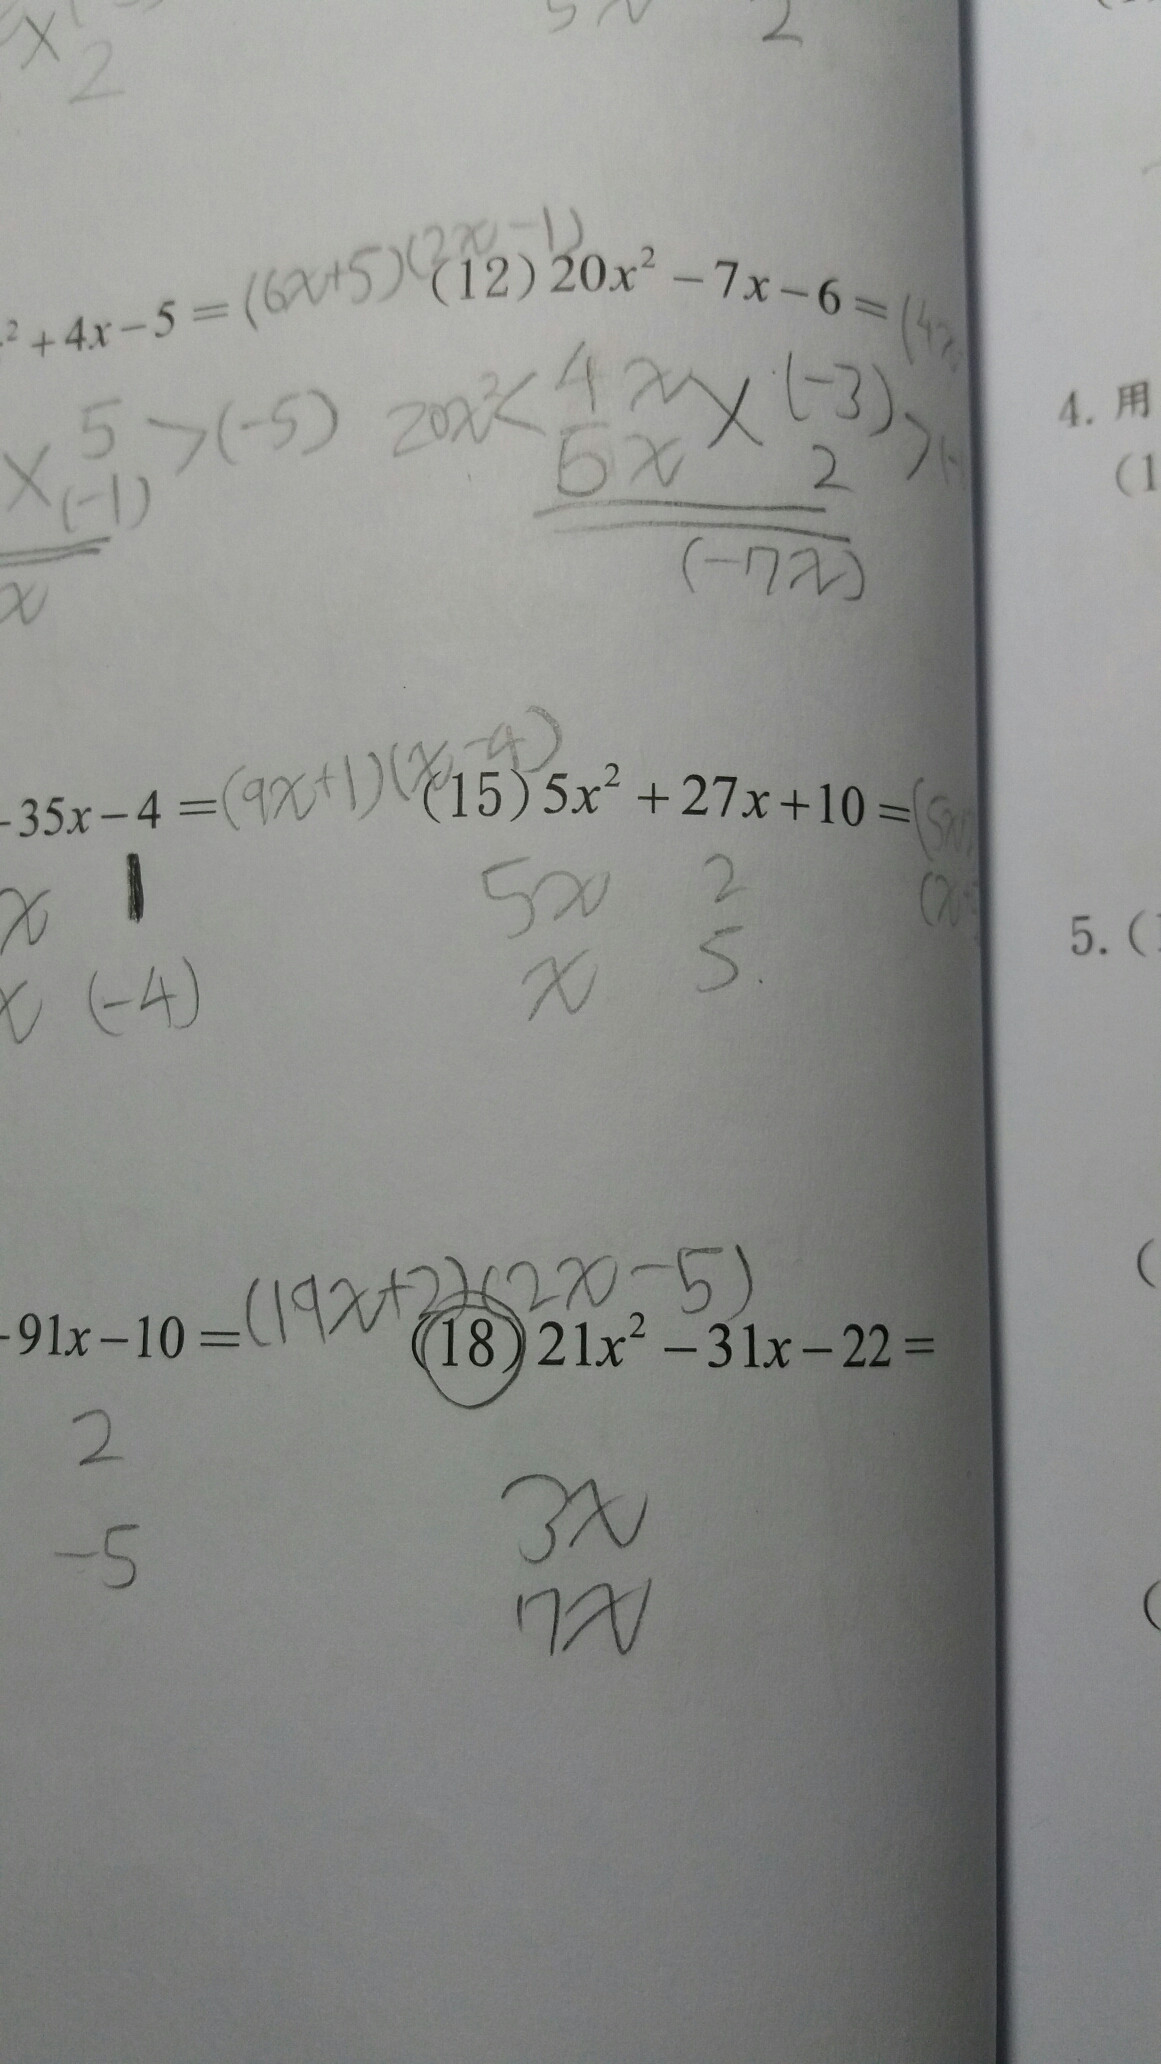 x
2
2
² + 4x - 5 = (6x+5)(2x-1)
(12) 20x² - 7x - 6 = (4x
x 5 > (-5)
(-1)
x
20x² < 4x x (-3) >
5x 2
(-7x)
-35x - 4 = (9x+1)(x-4)
x 1
x (-4)
(15) 5x² + 27x + 10 = (5x
(x
5x 2
x 5.
-91x - 10 = (19x+2)(2x-5)
2
-5
(18) 21x² - 31x - 22 =
3x
7x
4. 用
(1
5. (1
(
(